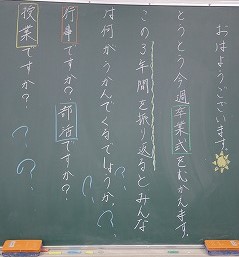 おはようございます。
とうとう今週卒業式をむかえます。
この3年間を振り返るとみんな
は何がうかんでくるでしょうか。
行事ですか?部活ですか?
授業ですか?